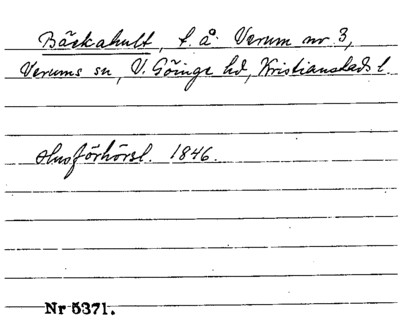 Bäckahult, t. å. Verum nr 3,
Verums sn, V. Göinge hd, Kristianstads l.
Husförhörsl. 1846.
Nr 5371.